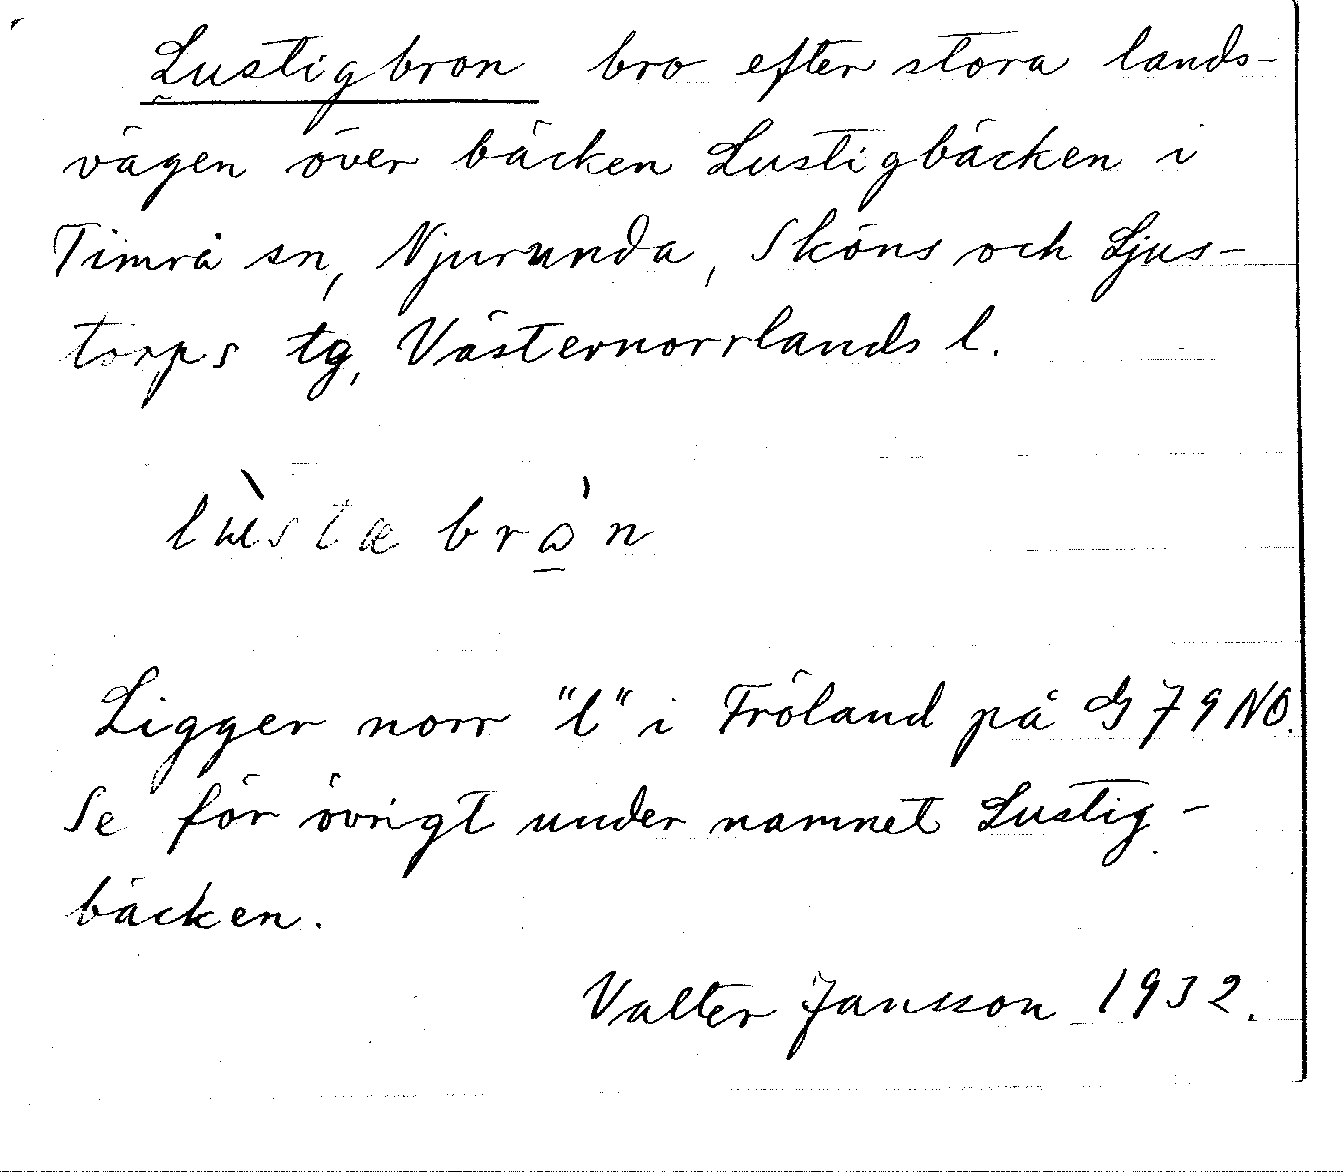 Lustigbron bro efter stora lands-
vägen över bäcken Lustigbäcken i
Timrå sn, Njurunda, Sköns och Ljus-
torps tg, Västernorrlands l.
Ligger norr "l" i Fröland på G 79 NO.
Se för övrigt under namnet Lustig-
bäcken.
Valter Jansson 1932.